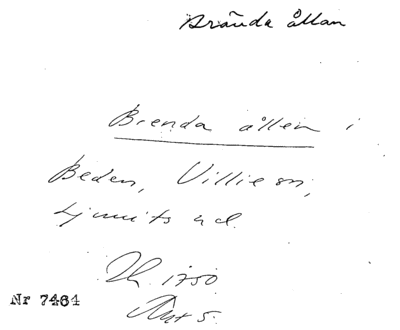 Brända ållan
Brenda ållen i
Beden, Villie sn,
Ljunits hd.
Th. 1750
Nr 7464
s.